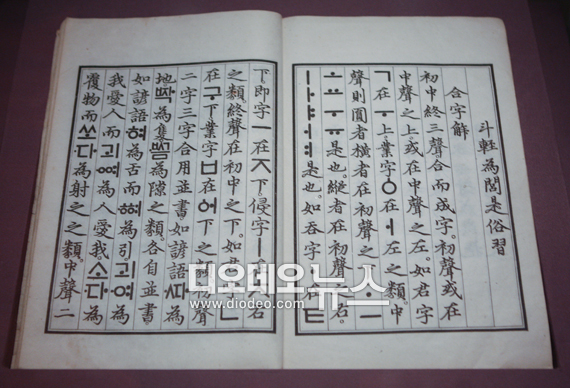 斗輕為閭是俗習
合字解
初中終三聲合而成字。初聲或在
中聲之上。或在中聲之左。如君字
ㄱ在ㅜ上業字ㆁ在ㅓ左之類。中
聲則圓者橫者在初聲之ㆍㅡ
ㅗㅛㅜㅠ是也。縱者在初聲之右。
ㅣㅏㅑㅓㅕ是也。如呑字在ㅌ
下即字ㅡ在ㅈ下。侵字ㅣ右
之類終聲在初中之下。如君ㄴ
在구下業字ㅂ在ᅌᅥ下之聲
二字三字合用並書如諺語ᄯᅡ為
地ᄧᅡᆨ為隻ᄢᅳᆷ為隙之類。各自並書
如諺語혀為舌而ᅘᅧ為引괴여為
我愛人而괴ᅇᅧ為人愛我。소다為
覆物而쏘다為射之之類。中聲二
디오데오뉴스
www.diodeo.com